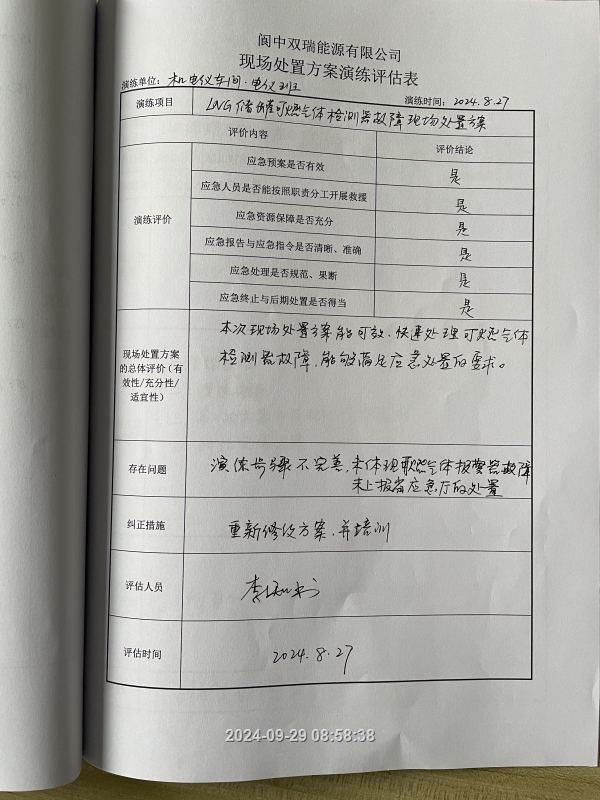 阆中双瑞能源有限公司
现场处置方案演练评估表
演练单位：机电仪车间·电仪班
演练时间：2024.8.27
演练项目 LNG储罐可燃气体检测器故障现场处置方案
评价内容 评价结论
演练评价
应急预案是否有效 是
应急人员是否能按照职责分工开展救援 是
应急资源保障是否充分 是
应急报告与应急指令是否清晰、准确 是
应急处理是否规范、果断 是
应急终止与后期处置是否得当 是
现场处置方案
的总体评价（有
效性/充分性/
适宜性）
本次现场处置方案能可效、快速处理可燃气体
检测器故障，能够满足应急处置的要求。
存在问题
演练步骤不完善，未体现燃气体报警器故障
未上报省应急厅的处置
纠正措施 重新修改方案，并培训
评估人员
评估时间 2024.8.27
2024-09-29 08:58:38